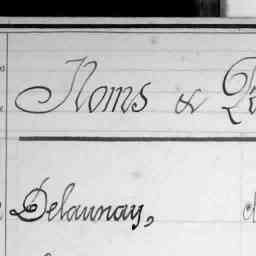 Noms &
Delaunay,